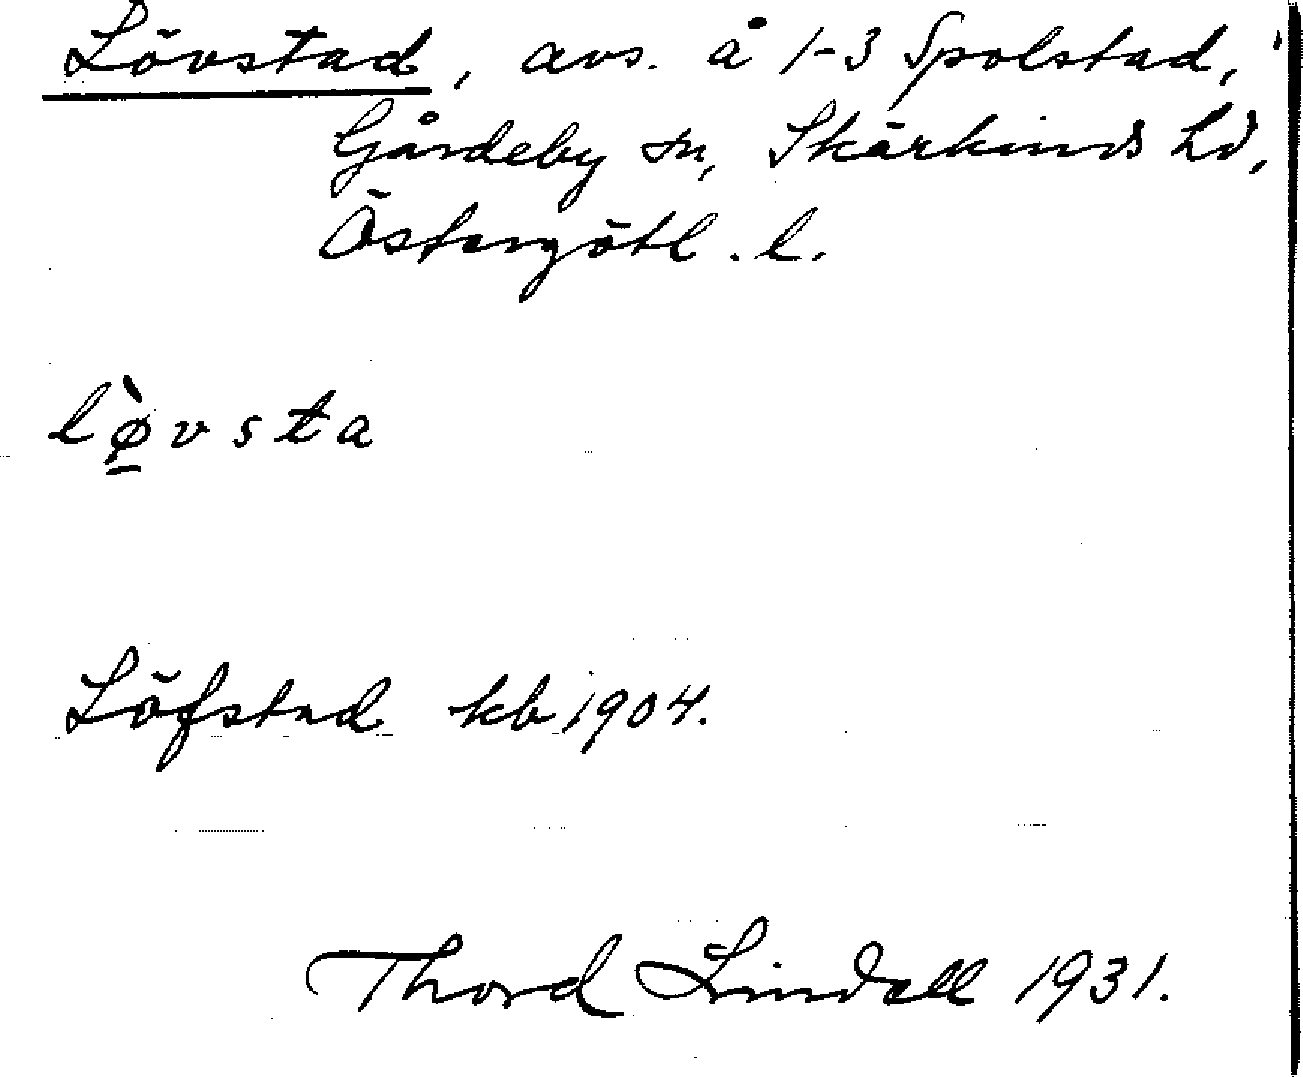 Lövstad, avs. å 1-3 Spolstad,
Gårdeby sn, Skärkinds hd,
Östergötl. l.
lø̱̀vsta
Löfstad kb 1904.
Thord Lindell 1931.